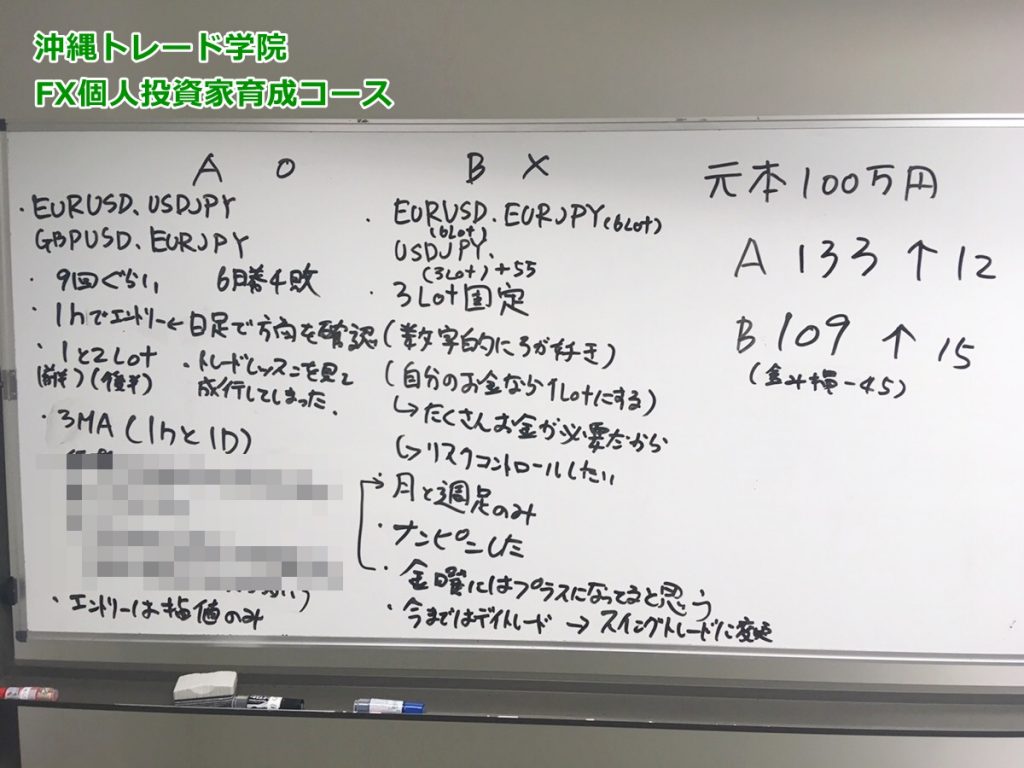 沖縄トレード学院
FX個人投資家育成コース
A O
・EURUSD、USDJPY
GBPUSD、EURJPY
・9回ぐらい 6勝4敗
・1hでエントリー←日足で方向を確認
・1と2Lot
(前半)(後半)
・トレードレッスンを見て
成行してしまった.
・3MA(1hと1D)
・エントリーは指値のみ
B X
・EURUSD、EURJPY(6Lot)
(6Lot)
USDJPY、
(3Lot)+55
・3Lot固定
(数字的に3が好き)
(自分のお金なら1Lotにする)
↳たくさんお金が必要だから
(↳リスクコントロールしたい
→・月と週足のみ
・ナンピンした
・金曜にはプラスになってると思う
・今まではデイトレード → スイングトレードに変更
元本100万円
A 133 ↑ 12
B 109 ↑ 15
(含み損-45)